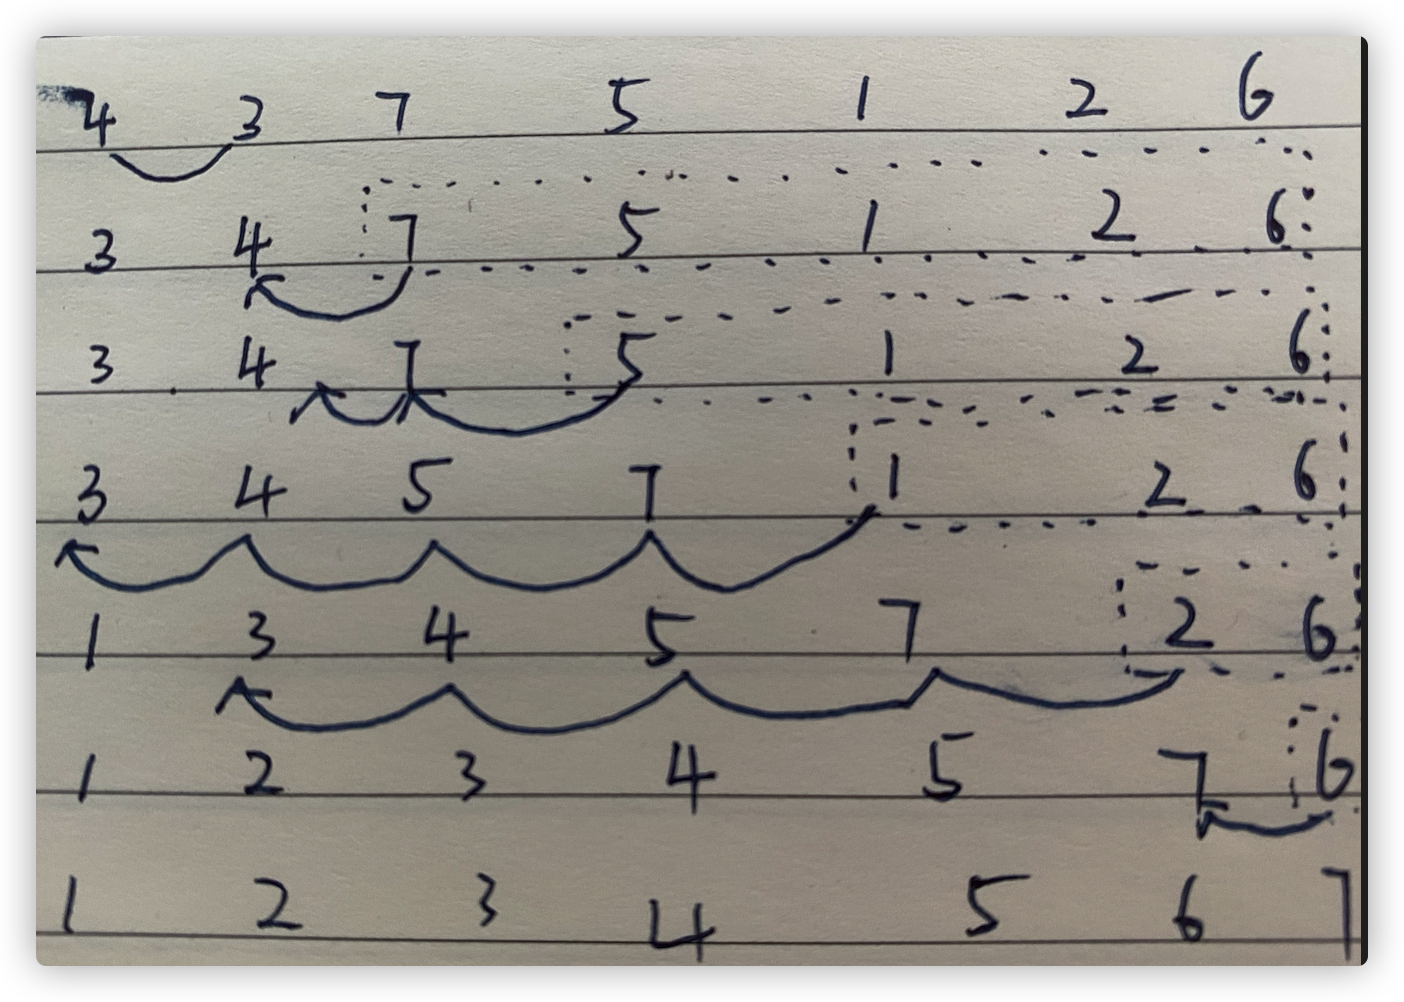 4 3 7 5 1 2 6
3 4 7 5 1 2 6
3 4 7 5 1 2 6
3 4 5 7 1 2 6
1 3 4 5 7 2 6
1 2 3 4 5 7 6
1 2 3 4 5 6 7